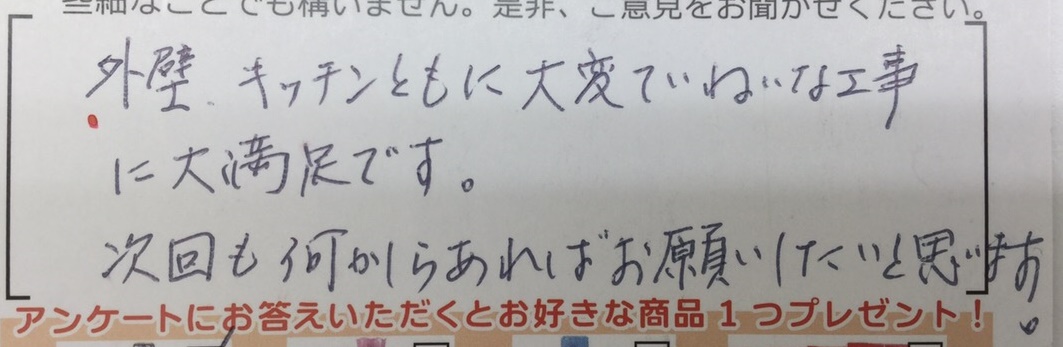 些細なことでも構いません。是非、ご意見をお聞かせください。
外壁、キッチンともに大変ていねいな工事
に大満足です。
次回も何からあればお願いしたいと思います。
アンケートにお答えいただくとお好きな商品1つプレゼント!